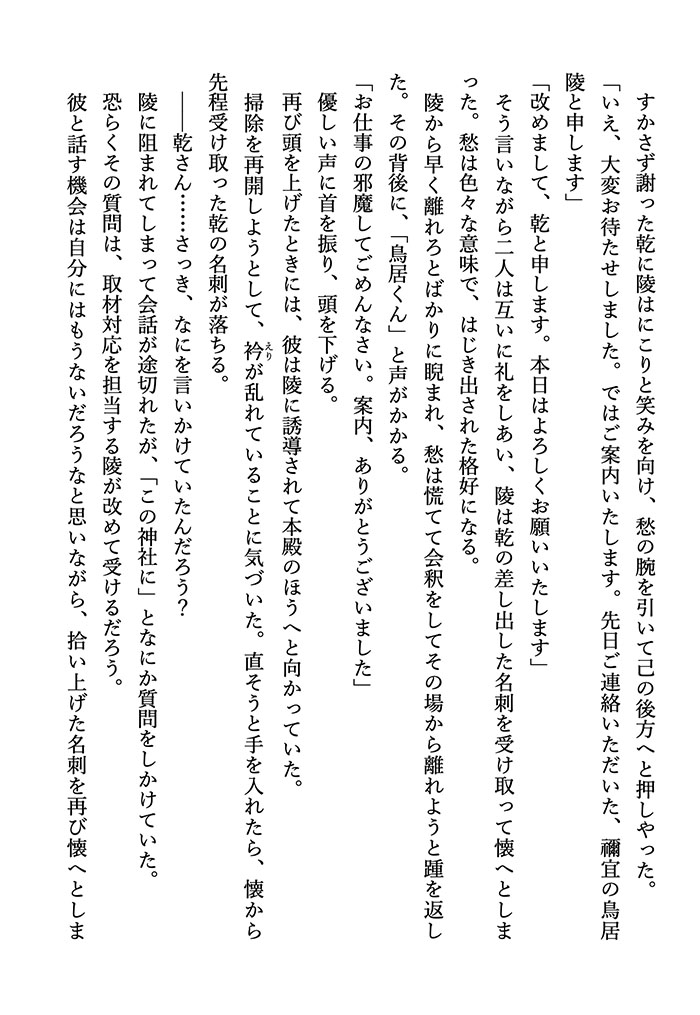 すかさず謝った乾に陵はにこりと笑みを向け、愁の腕を引いて己の後方へと押しやった。
「いえ、大変お待たせしました。ではご案内いたします。先日ご連絡いただいた、禰宜の鳥居
陵と申します」
「改めまして、乾と申します。本日はよろしくお願いいたします」
そう言いながら二人は互いに礼をしあい、陵は乾の差し出した名刺を受け取って懐へとしま
った。愁は色々な意味で、はじき出された格好になる。
陵から早く離れろとばかりに睨まれ、愁は慌てて会釈をしてその場から離れようと踵を返し
た。その背後に、「鳥居くん」と声がかかる。
「お仕事の邪魔してごめんなさい。案内、ありがとうございました」
優しい声に首を振り、頭を下げる。
再び頭を上げたときには、彼は陵に誘導されて本殿のほうへと向かっていた。
掃除を再開しようとして、衿えりが乱れていることに気づいた。直そうと手を入れたら、懐から
先程受け取った乾の名刺が落ちる。
――乾さん……さっき、なにを言いかけていたんだろう?
陵に阻まれてしまって会話が途切れたが、「この神社に」となにか質問をしかけていた。
恐らくその質問は、取材対応を担当する陵が改めて受けるだろう。
彼と話す機会は自分にはもうないだろうなと思いながら、拾い上げた名刺を再び懐へとしま